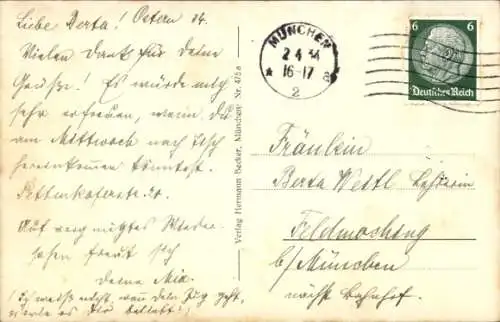 Liebe Berta! Ostern 34.
Vielen Dank für deine
Grüße! Es würde mich
sehr erfreuen, wenn du
am Mittwoch nach Tisch
hereinkommen könntest.
Pettenkoferstr. 20.
Auf vergnügtes Wieder-
sehen freut sich
deine Mia.
(Ich weiß nicht, wann dein Zug geht,
wie es dir beliebt!)
Verlag Hermann Becker, München Nr. 475a
MÜNCHEN
2 4 34
16-17
2
6 6
Deutsches Reich
Fräulein
Berta Westl
Feldmoching
b/München
nächst Bahnhof.